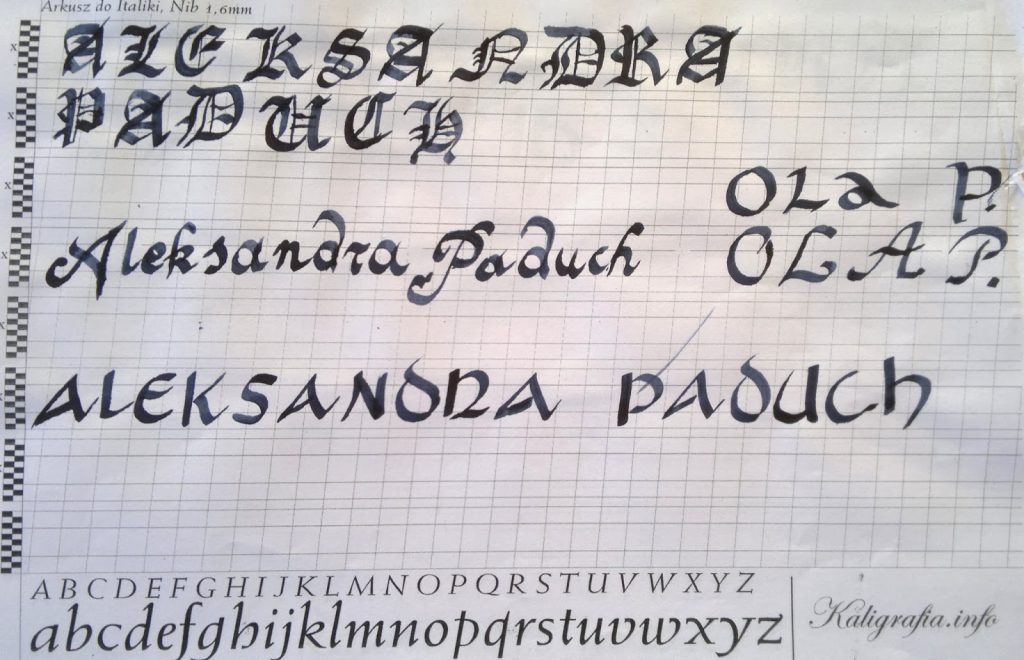 Arkusz do Italiki, Nib 1,6mm
x
ALEKSANDRA
x
PADUCH
x
OLa P.
x
Aleksandra Paduch OLA P.
x
ALEKSANDRA PADUCh
ABCDEFGHIJKLMNOPQRSTUVWXYZ
abcdefghijklmnopqrstuvwxyz
Kaligrafia.info